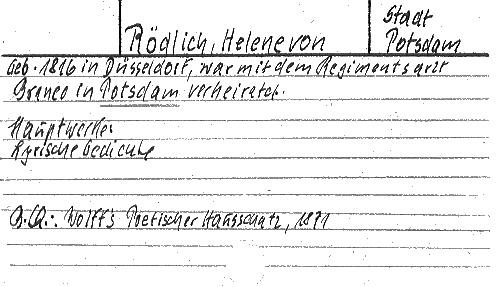 Stadt
Rödlich, Helene von
Potsdam
Geb. 1816 in Düsseldorf, war mit dem Regimentsarzt
in Potsdam verheiratet.
Hauptwerke:
Lyrische Gedichte
Wolff's Poetischer Hausschatz, 1871